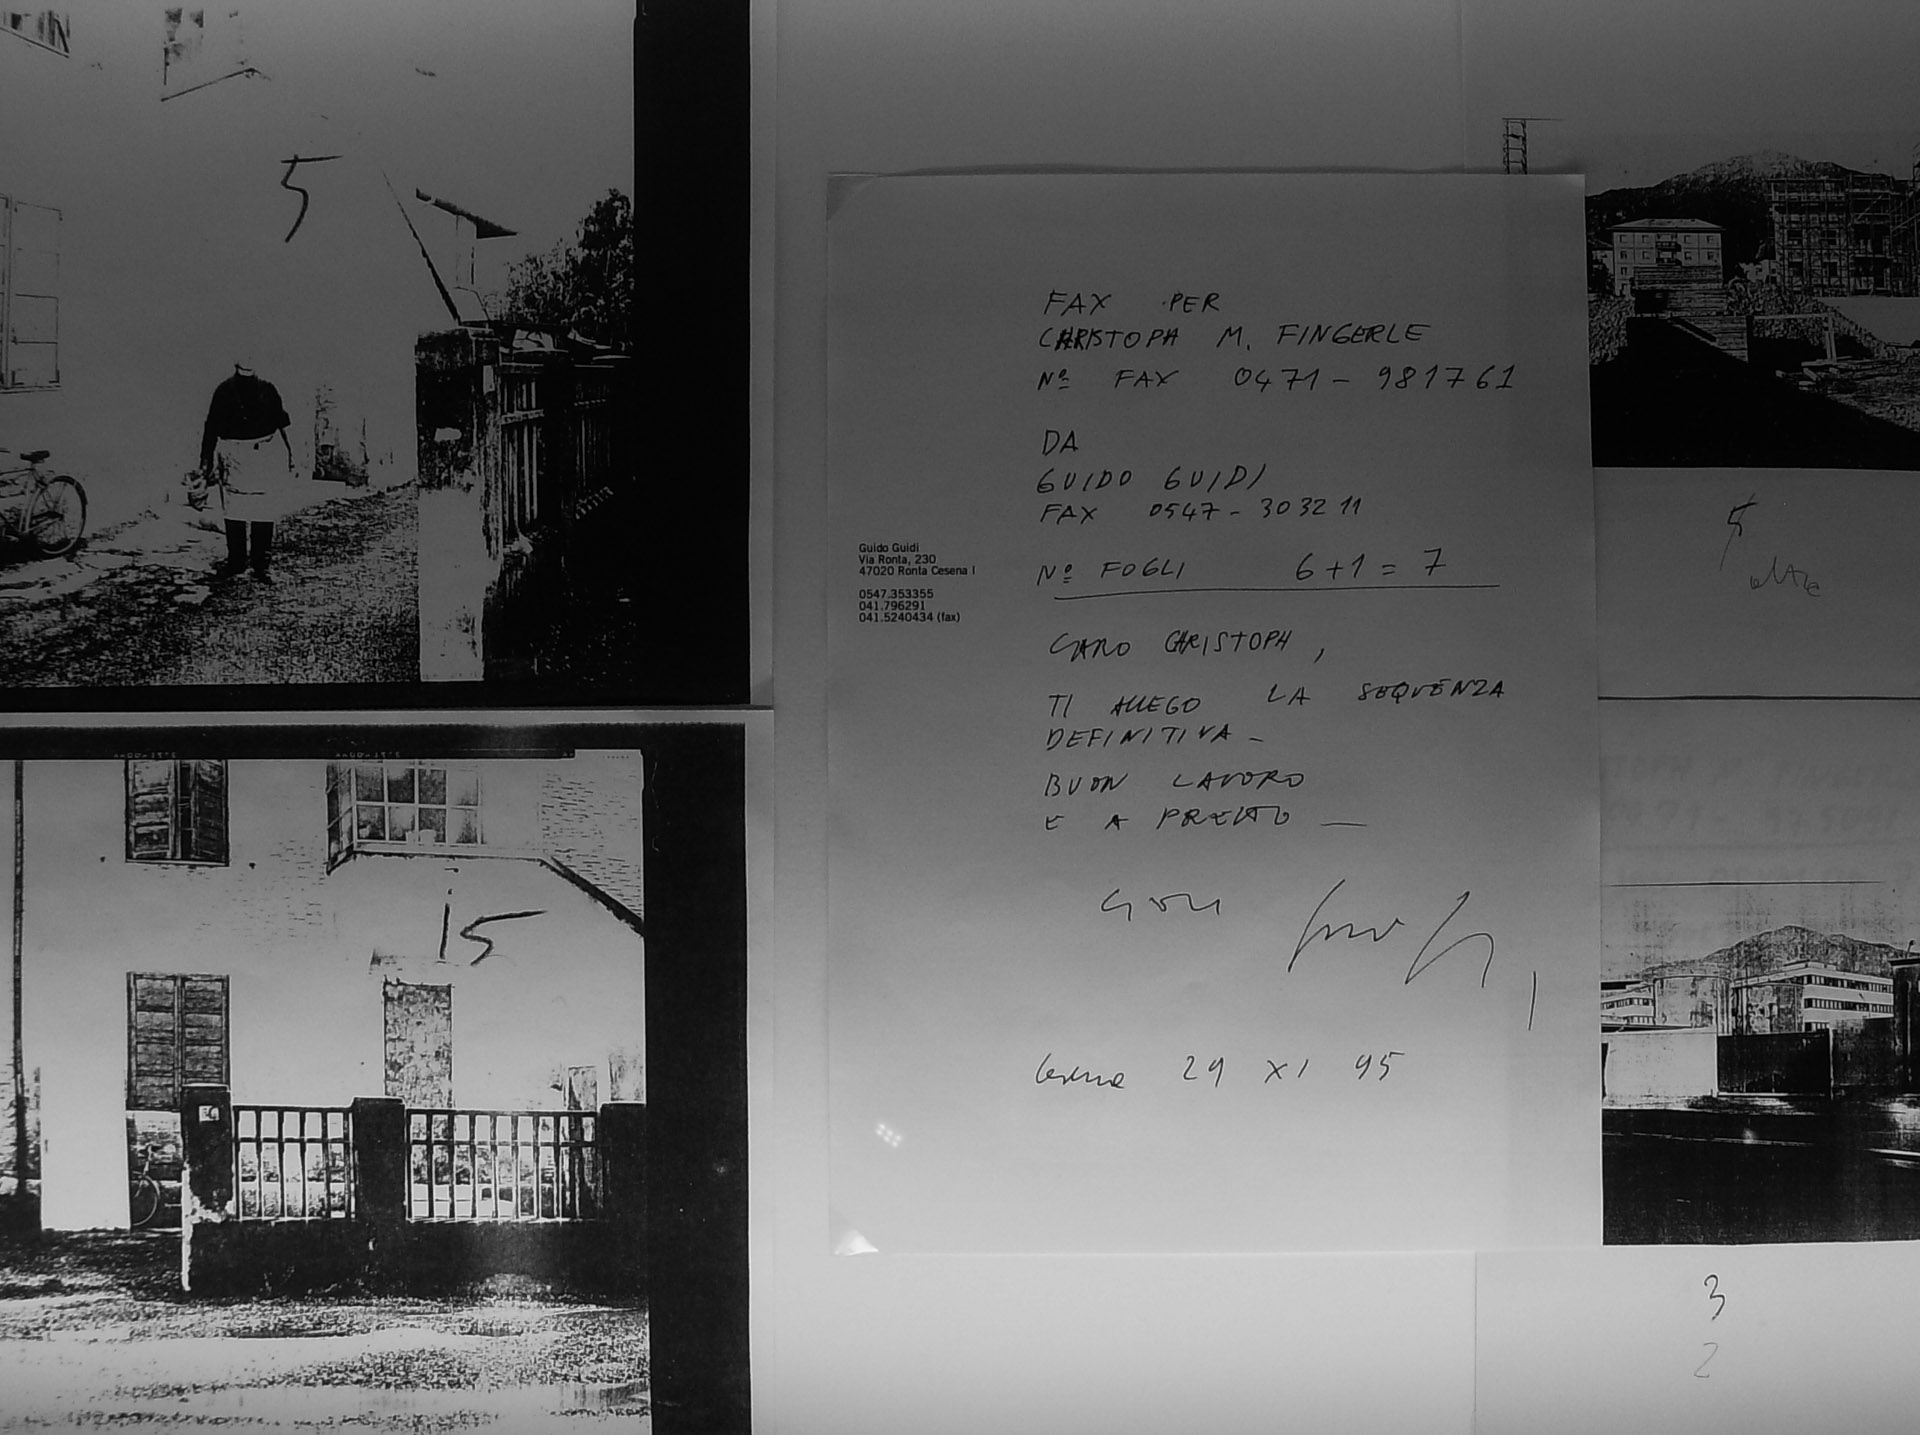 5
15
FAX PER
CHRISTOPH M. FINGERLE
Nº FAX 0471 - 981761
DA
GUIDO GUIDI
FAX 0547 - 303211
Nº FOGLI 6+1 = 7
CARO CHRISTOPH,
TI ALLEGO LA SEQUENZA
DEFINITIVA -
BUON LAVORO
E A PRESTO —
Cesena 29 XI 95
Guido Guidi
Via Ronta, 230
47020 Ronta Cesena I
0547.353355
041.796291
041.5240434 (fax)
5
3
2